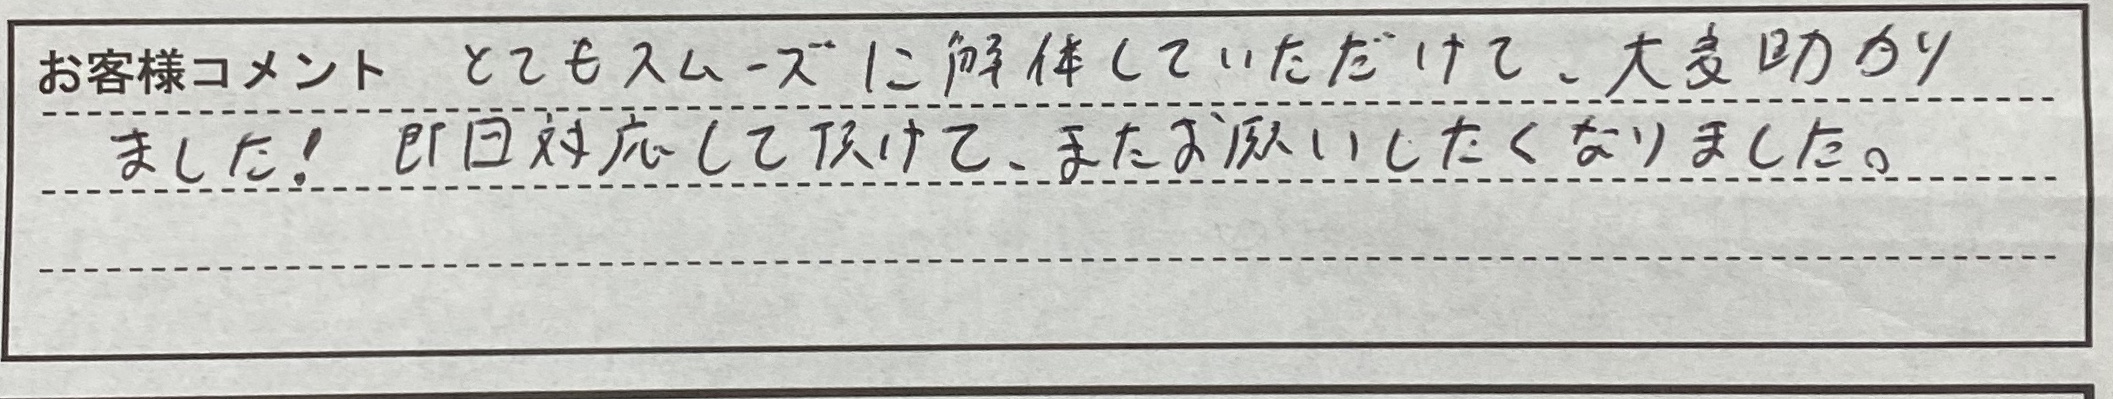 お客様コメント とてもスムーズに解体していただけて、大変助かり
ました! 即日対応して頂けて、またお願いしたくなりました。